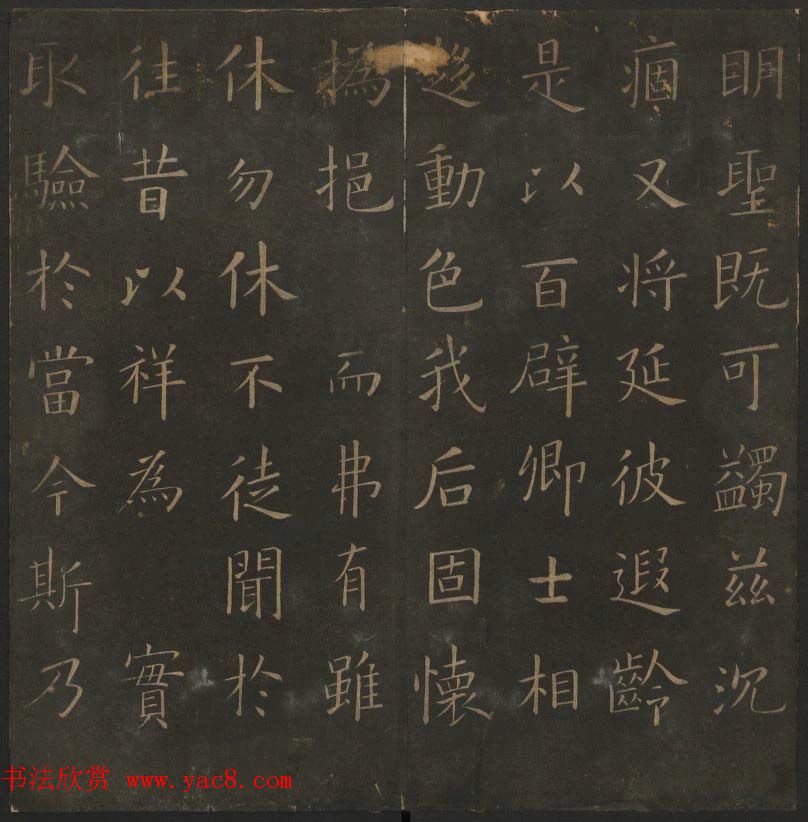 明聖既可蠲兹沉
痼又将延彼遐齡
是以百辟卿士相
趍動色我后固懐
撝挹而弗有雖
休勿休不徒聞於
往昔以祥為實
取驗於當今斯乃
书法欣赏 www.yac8.com